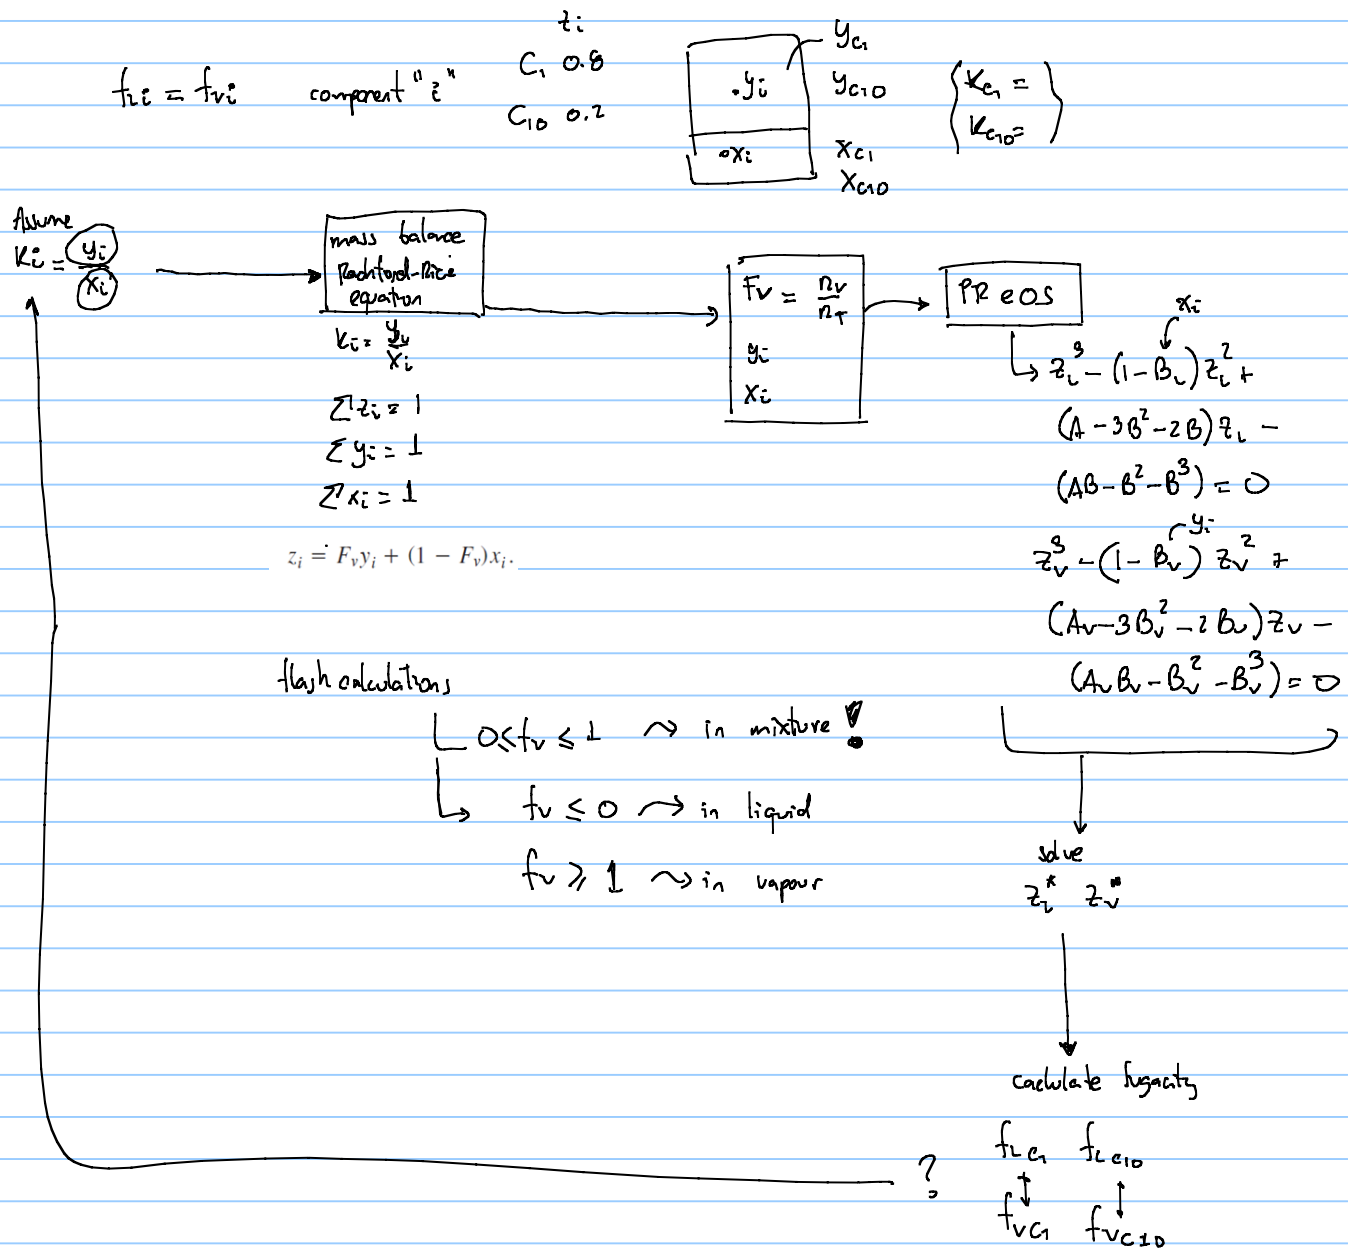 f_Li = f_vi component "i"
z_i
C_1 0.8
C_10 0.2
.y_i
x_i
y_C1
y_C10
x_C1
x_C10
K_C1 =
K_C10 =
Assume
K_i = y_i / x_i
mass balance
Rachford-Rice
equation
K_i = y_i / x_i
Σ z_i = 1
Σ y_i = 1
Σ x_i = 1
z_i = F_v y_i + (1 − F_v)x_i.
F_v = n_v / n_T
y_i
x_i
PR eOS
x_i
z_L^3 - (1 - B_L) z_L^2 +
(A - 3B^2 - 2B) z_L -
(AB - B^2 - B^3) = 0
y_i
z_v^3 - (1 - B_v) z_v^2 +
(A_v - 3B_v^2 - 2B_v) z_v -
(A_v B_v - B_v^2 - B_v^3) = 0
flash calculations
0 ≤ f_v ≤ 1 in mixture !
f_v ≤ 0 in liquid
f_v ≥ 1 in vapour
solve
z_L^* z_v^*
caclulate fugacity
f_LC1 f_LC10
?
f_vC1 f_vC10